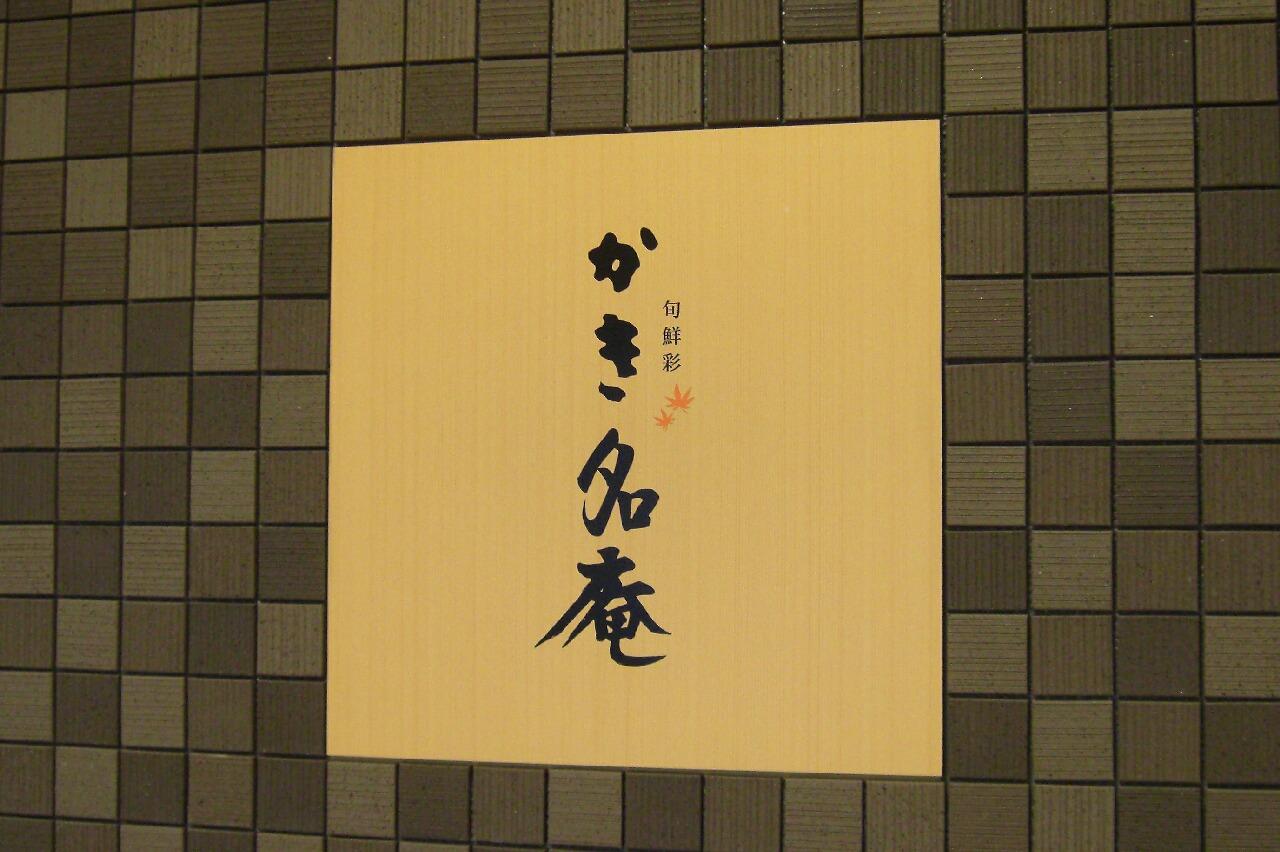 旬鮮彩
かき名庵